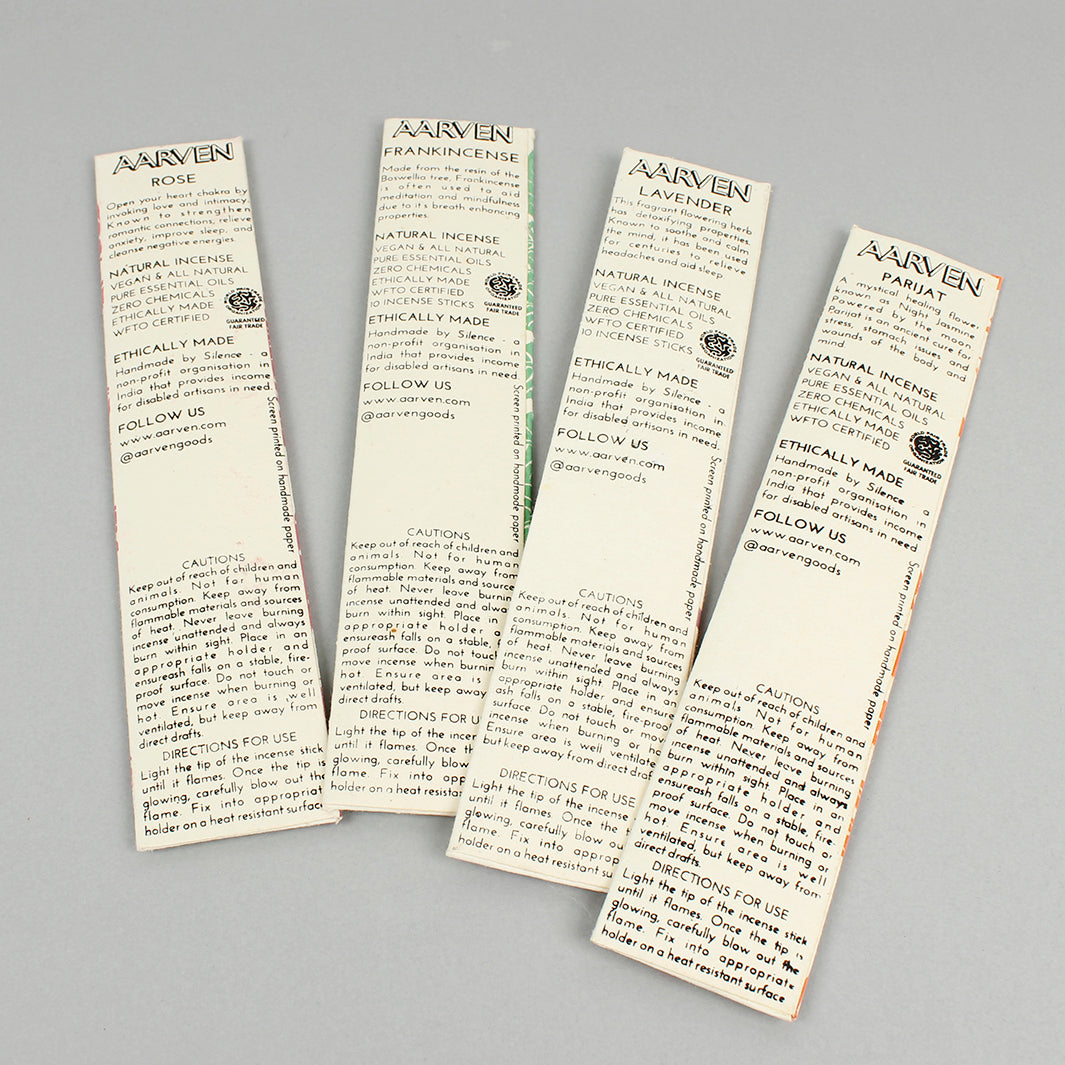 AARVEN
ROSE
Open your heart chakra by
invoking love and intimacy.
Known to strengthen
romantic connections, relieve
anxiety, improve sleep, and
cleanse negative energies.
NATURAL INCENSE
VEGAN & ALL NATURAL
PURE ESSENTIAL OILS
ZERO CHEMICALS
ETHICALLY MADE
WFTO CERTIFIED
GUARANTEED
FAIR TRADE
ETHICALLY MADE
Handmade by Silence - a
non-profit organisation in
India that provides income
for disabled artisans in need.
FOLLOW US
www.aarven.com
@aarvengoods
Screen printed on handmade paper
CAUTIONS
Keep out of reach of children and
animals. Not for human
consumption. Keep away from
flammable materials and sources
of heat. Never leave burning
incense unattended and always
burn within sight. Place in an
appropriate holder and
ensureash falls on a stable, fire-
proof surface. Do not touch or
move incense when burning or
hot. Ensure area is well
ventilated, but keep away from
direct drafts.
DIRECTIONS FOR USE
Light the tip of the incense stick
until it flames. Once the tip is
glowing, carefully blow out the
flame. Fix into appropriat
holder on a heat resistant surface
AARVEN
FRANKINCENSE
Made from the resin of the
Boswellia tree, Frankincense
is often used to aid
meditation and mindfulness
due to it's breath enhancing
properties.
NATURAL INCENSE
VEGAN & ALL NATURAL
PURE ESSENTIAL OILS
ZERO CHEMICALS
ETHICALLY MADE
WFTO CERTIFIED
10 INCENSE STICKS
GUARANTEED
FAIR TRADE
ETHICALLY MADE
Handmade by Silence - a
non-profit organisation in
India that provides income
for disabled artisans in need.
FOLLOW US
www.aarven.com
@aarvengoods
Screen printed on handmade paper
CAUTIONS
Keep out of reach of children and
animals. Not for human
consumption. Keep away from
flammable materials and source
of heat. Never leave burning
incense unattended and alway
burn within sight. Place in
appropriate holder a
ensureash falls on a stable,
proof surface. Do not touc
move incense when burnin
hot. Ensure area is
ventilated, but keep away
direct drafts.
DIRECTIONS FOR U
Light the tip of the incer
until it flames. Once th
glowing, carefully blow
flame. Fix into app
holder on a heat resistan
AARVEN
LAVENDER
This fragrant flowering herb
has detoxifying properties.
Known to soothe and calm
the mind, it has been used
for centuries to relieve
headaches and aid sleep.
NATURAL INCENSE
VEGAN & ALL NATURAL
PURE ESSENTIAL OILS
ZERO CHEMICALS
WFTO CERTIFIED
10 INCENSE STICKS
GUARANTEED
FAIR TRADE
ETHICALLY MADE
Handmade by Silence - a
non-profit organisation in
India that provides income
for disabled artisans in need.
FOLLOW US
www.aarven.com
@aarvengoods
Screen printed on handmade paper
CAUTIONS
Keep out of reach of children and
animals. Not for human
consumption. Keep away from
flammable materials and sources
of heat. Never leave burning
incense unattended and always
burn within sight. Place in an
appropriate holder and ensure
ash falls on a stable, fire-proo
surface. Do not touch or move
incense when burning or ho
Ensure area is well ventilate
but keep away from direct draf
DIRECTIONS FOR USE
Light the tip of the incense
until it flames. Once the t
glowing, carefully blow ou
flame. Fix into approp
holder on a heat resistant su
AARVEN
PARIJAT
A mystical healing flower
known as Night Jasmine
Powered by the moon
Parijat is an ancient cure for
stress, stomach issues and
wounds of the body and
mind
NATURAL INCENSE
VEGAN & ALL NATURAL
PURE ESSENTIAL OILS
ZERO CHEMICALS
ETHICALLY MADE
WFTO CERTIFIED
GUARANTEED
FAIR TRADE
ETHICALLY MADE
Handmade by Silence - a
non-profit organisation in
India that provides income
for disabled artisans in need
FOLLOW US
www.aarven.com
@aarvengoods
Screen printed on handmade paper
CAUTIONS
Keep out of reach of children and
animals. Not for human
consumption. Keep away from
flammable materials and sources
of heat. Never leave burning
incense unattended and always
burn within sight. Place in an
appropriate holder, and
ensureash falls on a stable, fire-
proof surface. Do not touch or
move incense when burning or
hot. Ensure area is well
ventilated, but keep away from
direct drafts.
DIRECTIONS FOR USE
Light the tip of the incense stick
until it flames. Once the tip is
glowing, carefully blow out the
flame. Fix into appropriate
holder on a heat resistant surface